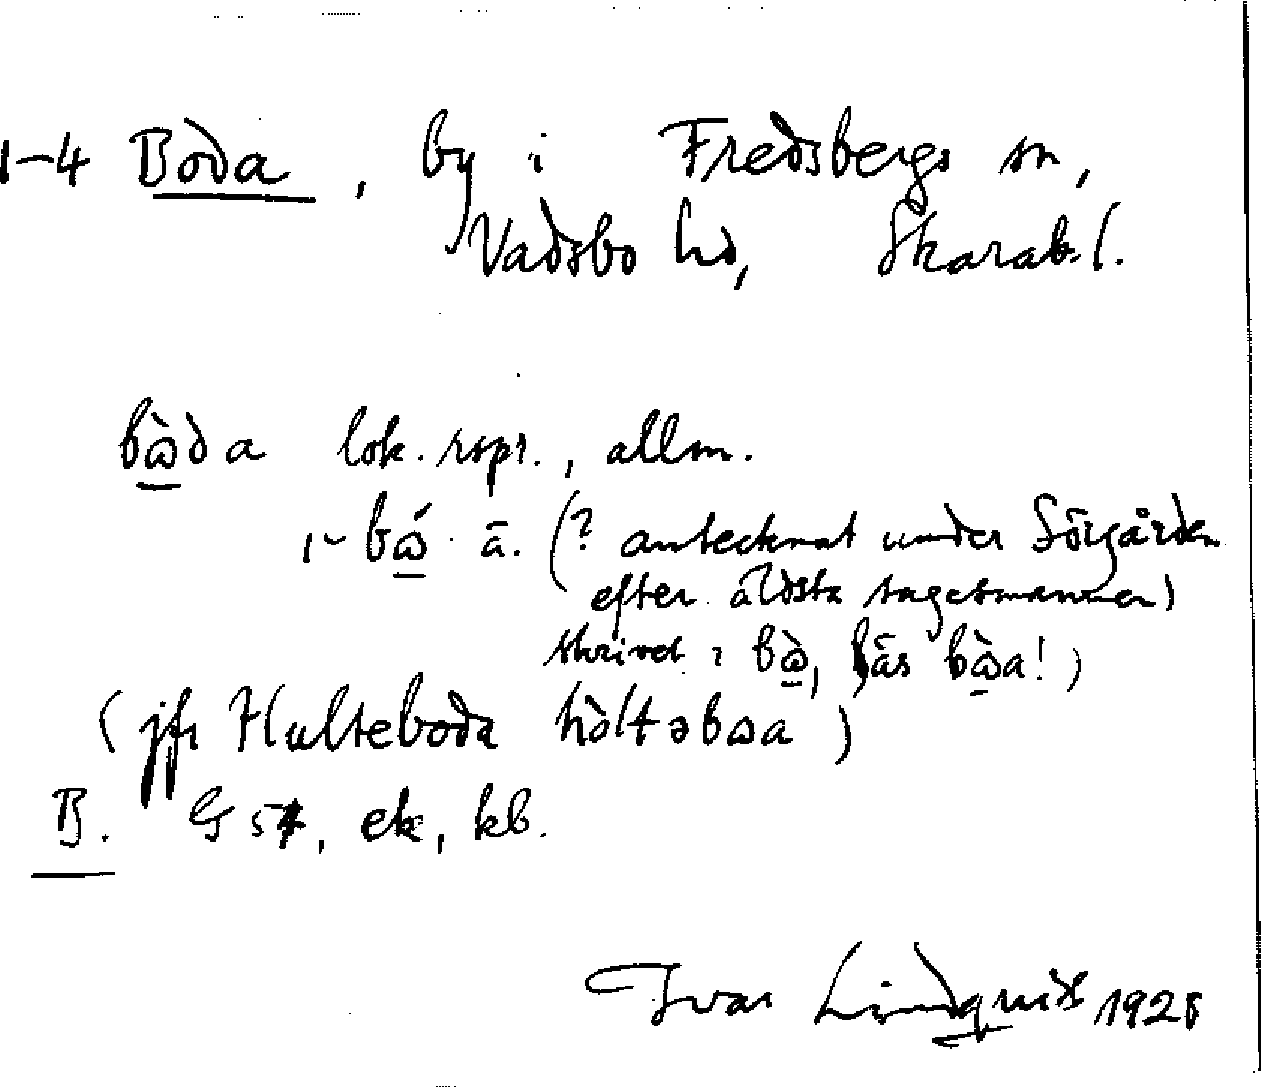 1-4 Boda, by i Fredsbergs sn,
Vadsbo hd, Skarab. l.
bὼda lok. rspr., allm.
bώ ä. (? antecknat under Sörgården
efter äldsta sagesmannen)
skrivet: bὼ, läs bὼa!)
(jfr Hulteboda hòltəbωa)
B. G 54, ek, kb.
Ivar Lindquist 1928